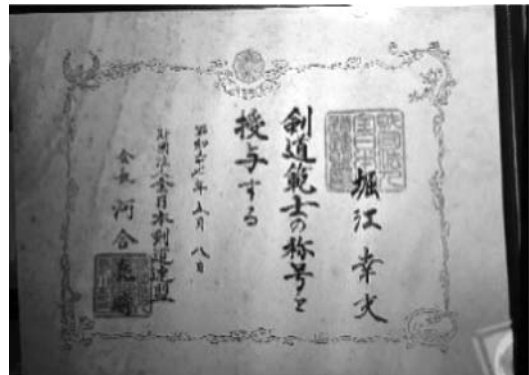 堀江幸
剣道範士の称号を
授与する
昭和年五月八日
財団法人全日本剣道連盟
会長 河合